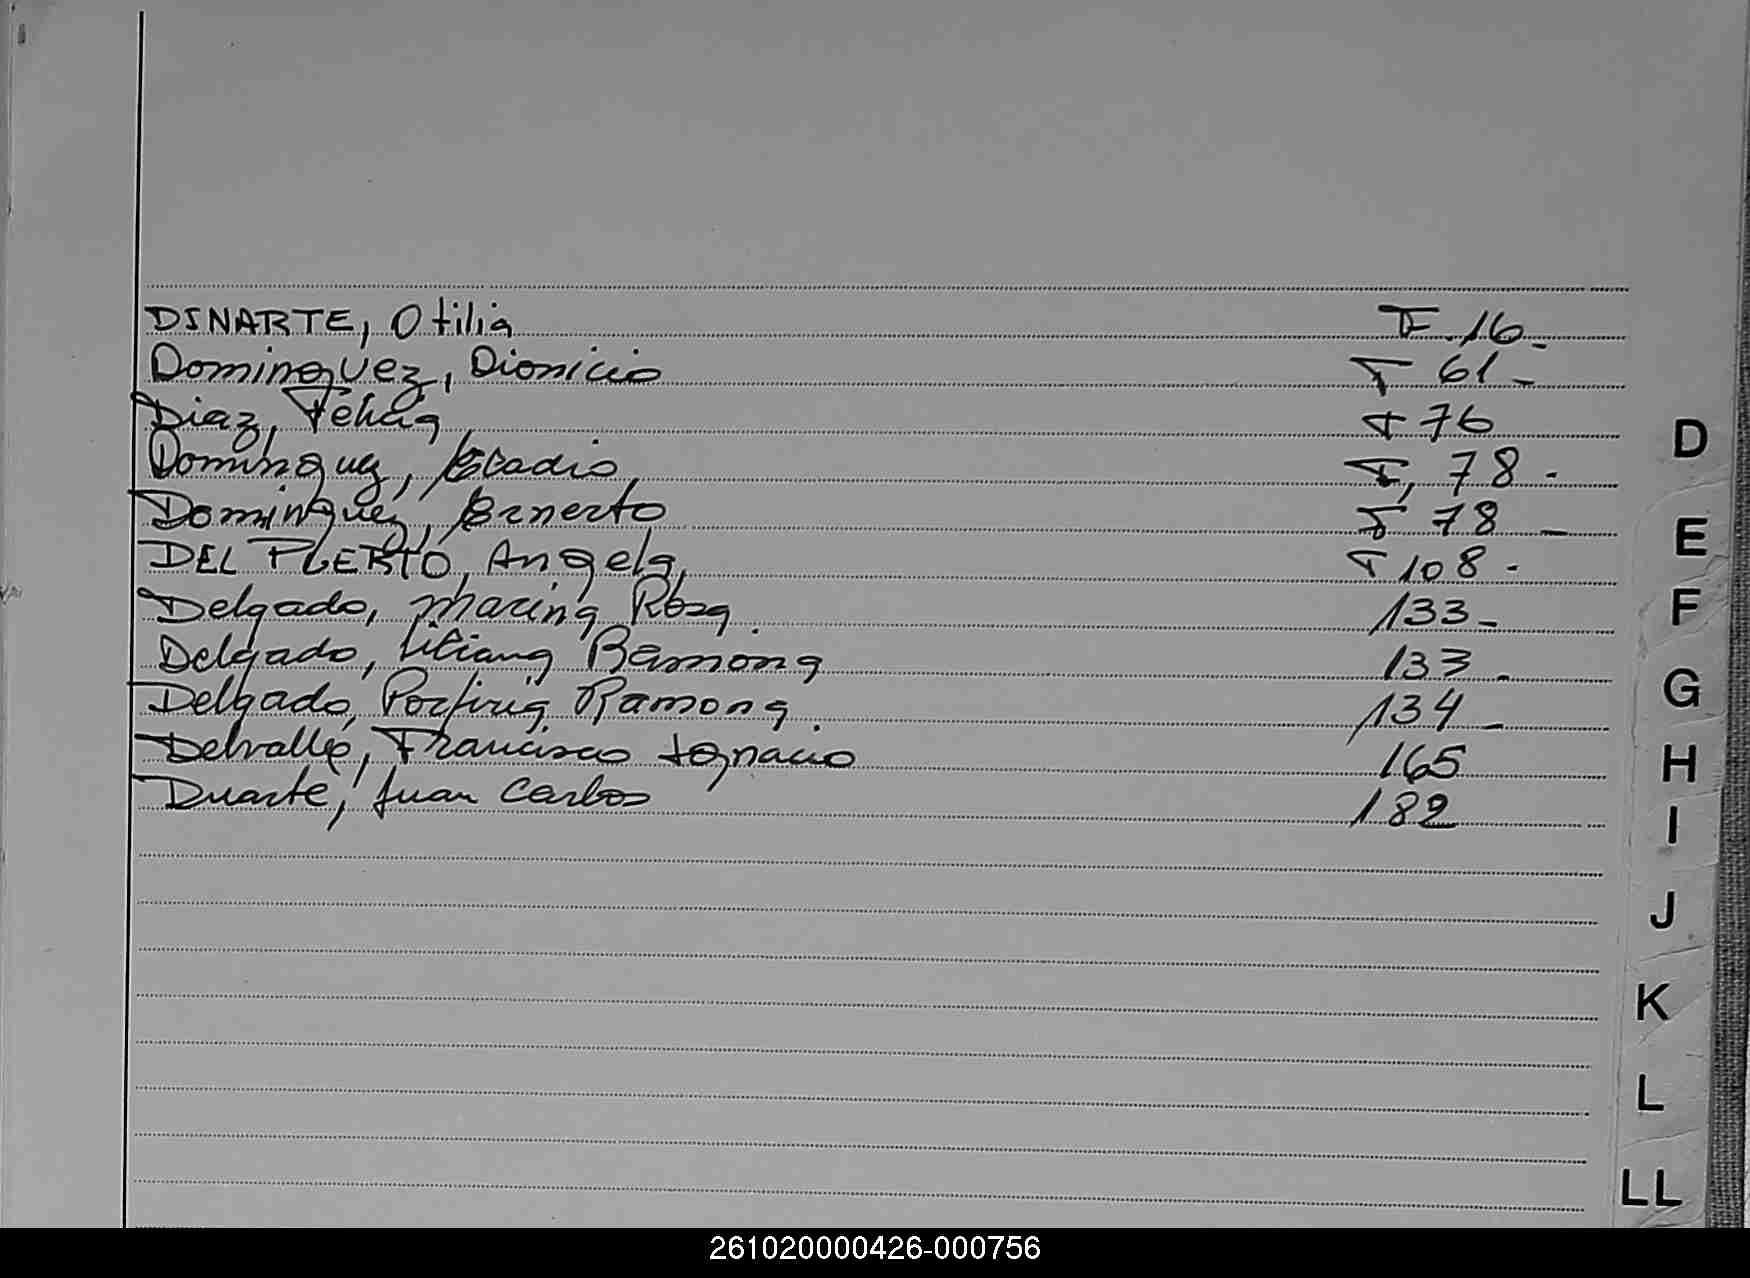 DINARTE, Otilia F. 16.
Dominguez, Dionicio F 61-
Diaz, F 76
Dominguez, F, 78.
Dominguez, Ernesto F 78-
DEL PUERTO, Angela, F 108.
Delgado, Marina Rosa. 133-
Delgado, Liliana Ramona 133.
Delgado, Porfiria Ramona. 134-
Delvalle, Francisco Ignacio 165
Duarte, Juan Carlos 182
D
E
F
G
H
I
J
K
L
LL
261020000426-000756